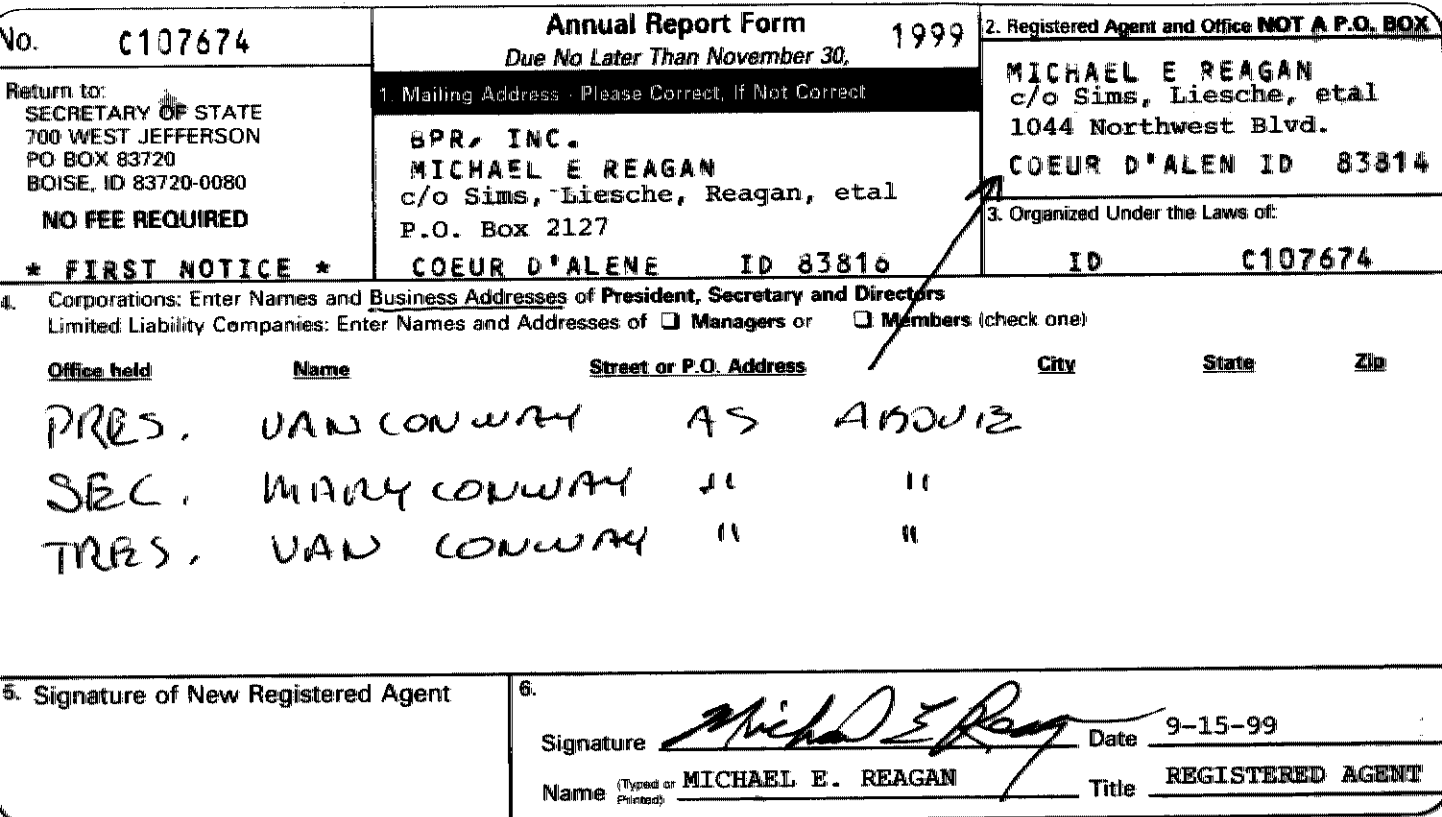 No. C107674
Annual Report Form 1999
Due No Later Than November 30,
Return to:
SECRETARY OF STATE
700 WEST JEFFERSON
PO BOX 83720
BOISE, ID 83720-0080
NO FEE REQUIRED
* FIRST NOTICE *
1. Mailing Address - Please Correct, If Not Correct
BPR, INC.
MICHAEL E REAGAN
c/o Sims, Liesche, Reagan, etal
P.O. Box 2127
COEUR D'ALENE ID 83816
2. Registered Agent and Office NOT A P.O. BOX
MICHAEL E REAGAN
c/o Sims, Liesche, etal
1044 Northwest Blvd.
COEUR D'ALEN ID 83814
3. Organized Under the Laws of:
ID C107674
4. Corporations: Enter Names and Business Addresses of President, Secretary and Directors
Limited Liability Companies: Enter Names and Addresses of ☐ Managers or ☐ Members (check one)
Office held Name Street or P.O. Address City State Zip
PRES. VAN CONWAY AS ABOVE
SEC. MARY CONWAY " "
TRES. VAN CONWAY " "
5. Signature of New Registered Agent
6.
Signature Michael E Reag Date 9-15-99
Name (Typed or Printed) MICHAEL E. REAGAN Title REGISTERED AGENT